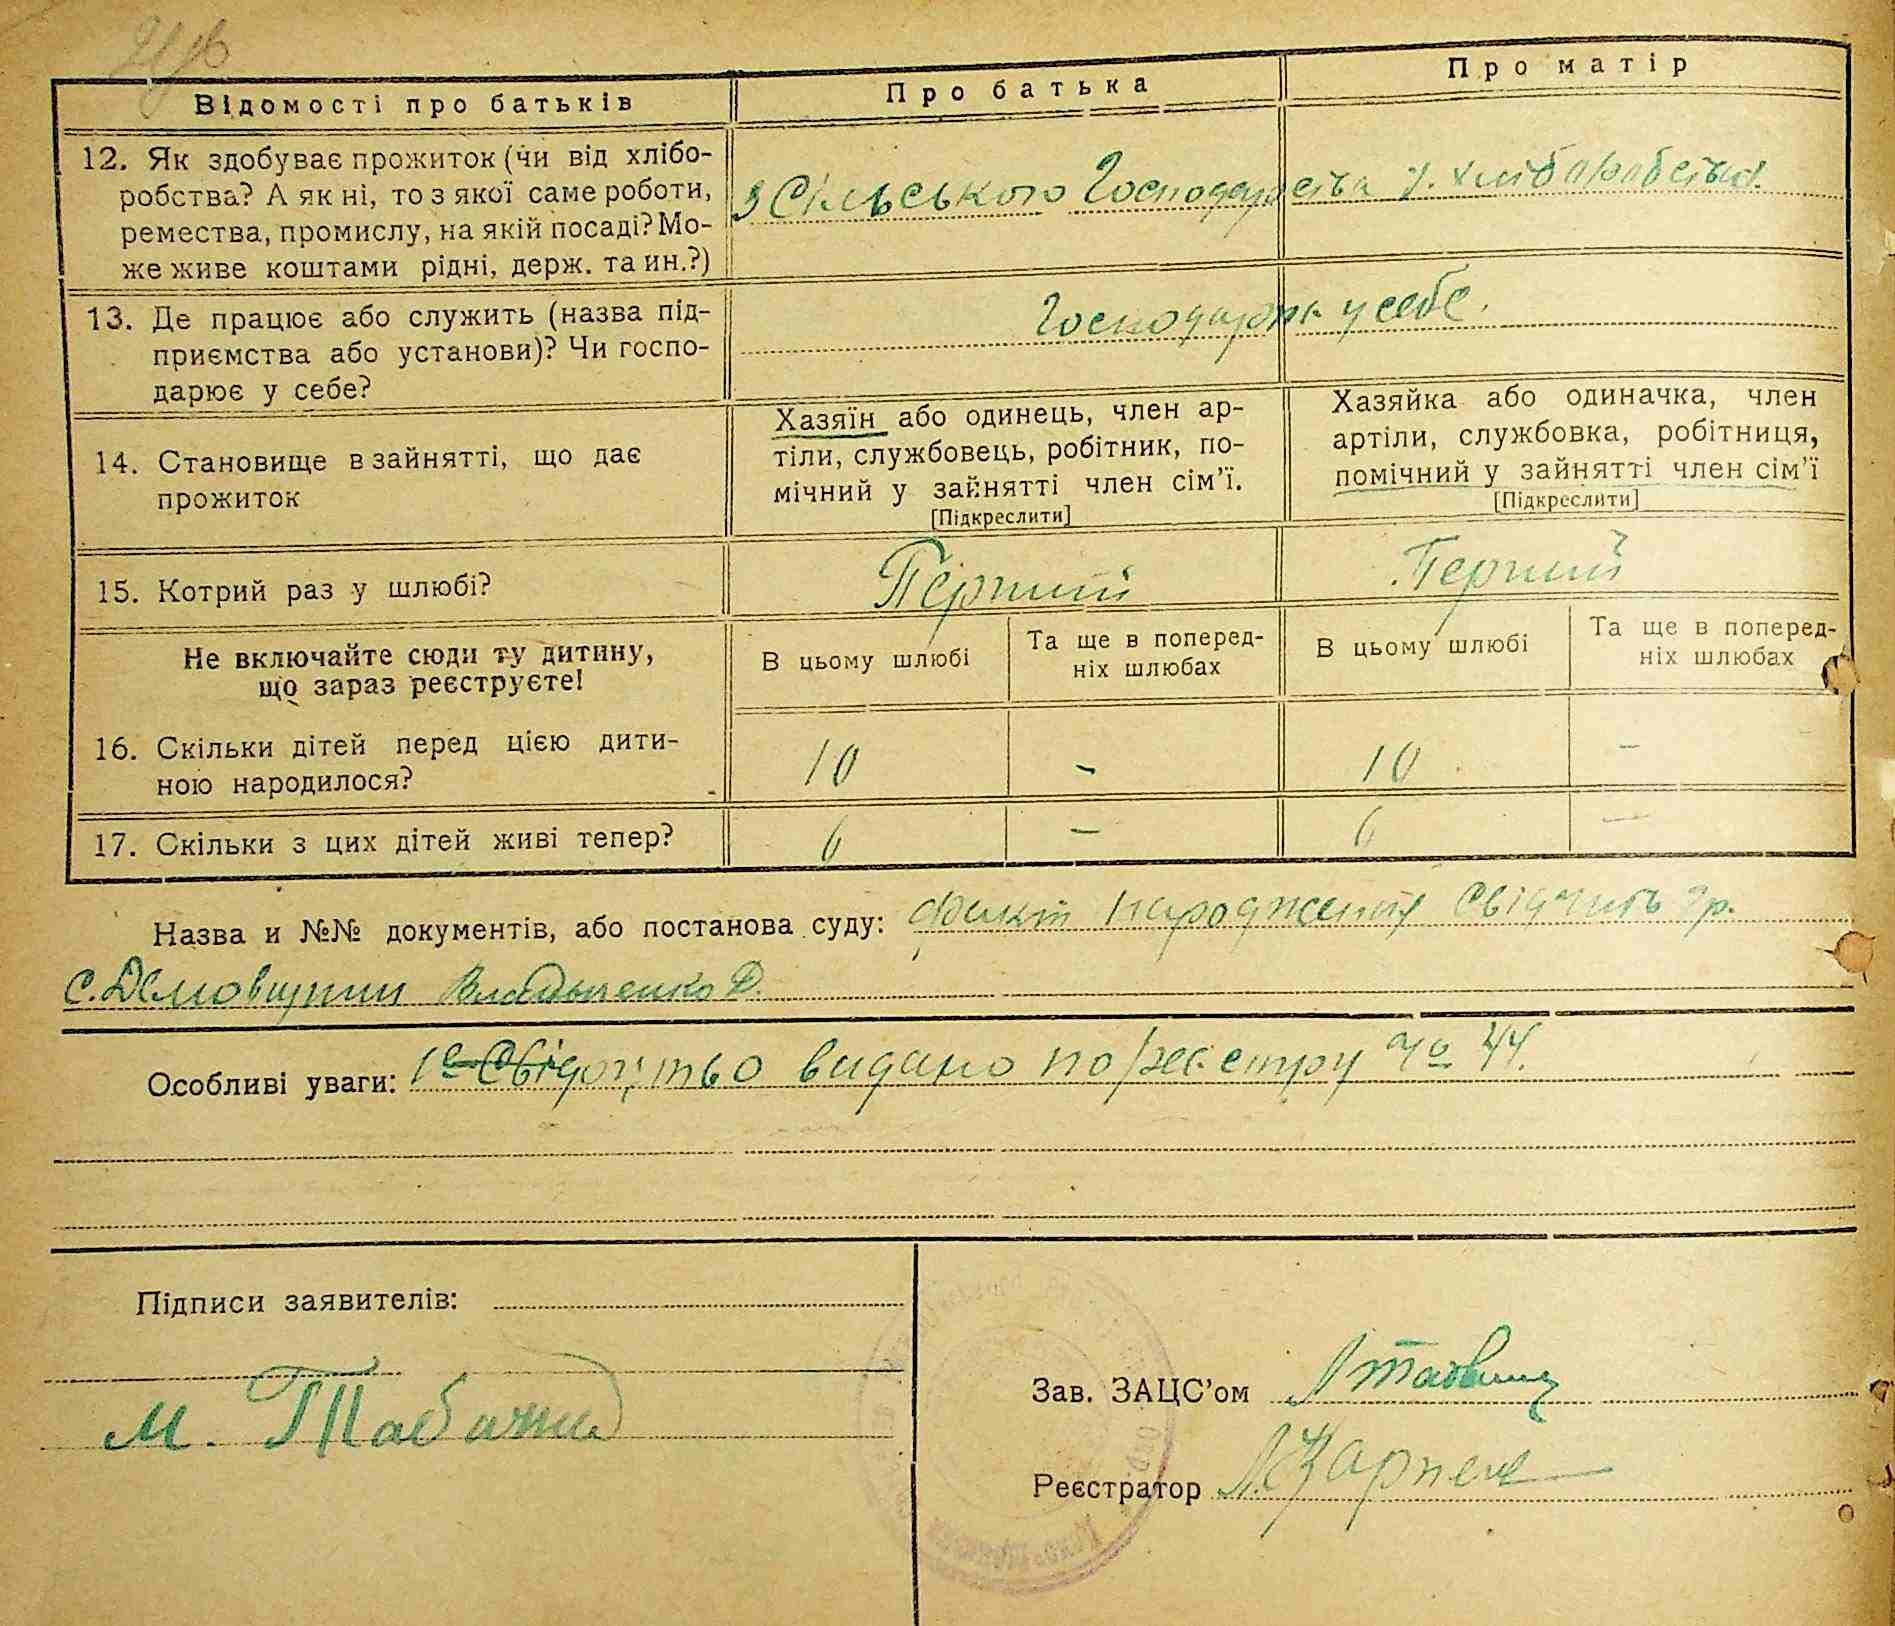 Відомості про батьків
Про батька
Про матір
12. Як здобуває прожиток (чи від хлібо-
робства? А як ні, то з якої саме роботи,
ремества, промислу, на якій посаді? Мо-
же живе коштами рідні, держ. та ин.?)
З Сільського Господарства
13. Де працює або служить (назва під-
приємства або установи)? Чи госпо-
дарює у себе?
у себе.
14. Становище в зайнятті, що дає
прожиток
Хазяїн або одинець, член ар-
тіли, службовець, робітник, по-
мічний у зайнятті член сім'ї.
[Підкреслити]
Хазяйка або одиначка, член
артіли, службовка, робітниця,
помічний у зайнятті член сім'ї
[Підкреслити]
15. Котрий раз у шлюбі?
Перший
Перший
Не включайте сюди ту дитину,
що зараз реєструєте!
В цьому шлюбі
Та ще в поперед-
ніх шлюбах
В цьому шлюбі
Та ще в поперед-
ніх шлюбах
16. Скільки дітей перед цією дити-
ною народилося?
10
-
10
-
17. Скільки з цих дітей живі тепер?
6
-
6
-
Назва и №№ документів, або постанова суду: Факт народження Свідчить гр.
с. Демовщини
Особливі уваги: Свідоцтво видано по реєстру № 44.
Підписи заявителів:
М.
Зав. ЗАЦС'ом
Реєстратор